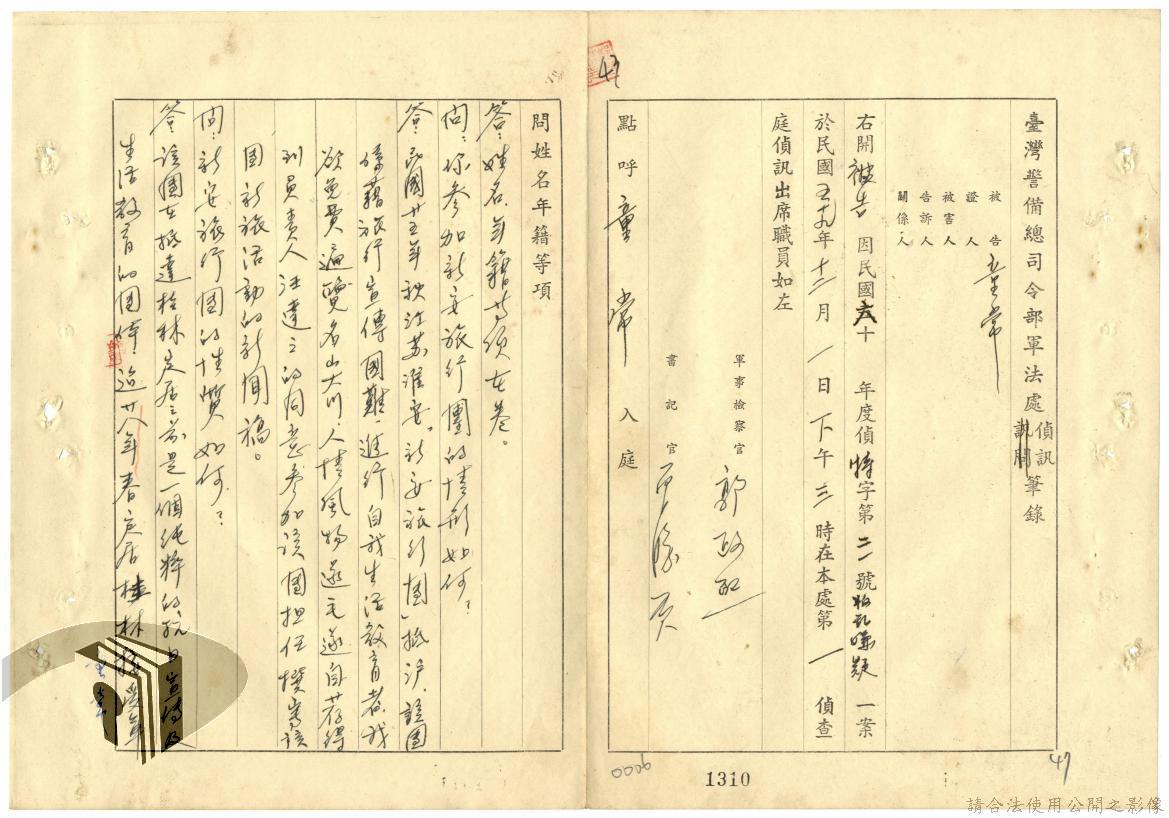 臺灣警備總司令部軍法處偵訊訊問筆錄
被告 童常
證人
被害人
告訴人
關係人
右開被告 因民國六十 年度偵特字第二一號 叛亂嫌疑 一案
於民國五十九年十二月一日下午三時在本處第一 偵查
庭偵訊出席職員如左
軍事檢察官 郭政熙
書記官
點呼 童常 入庭
問姓名年籍等項
答:姓名年籍等項在卷。
問:你參加新安旅行團的情形如何?
答:民國廿五年秋江蘇淮安「新安旅行團」抵沪,該團
係藉旅行宣傳國難,進行自我生活教育者,我
欲免費遍覽名山大川,人情風物遂毛遂自荐得
到負責人汪達之的同意參加該團担任撰寫該
團新旅活動的新聞稿。
問:新安旅行團的性質如何?
答:該團在抵達桂林定居之前是一個純粹的抗日宣傳及
生活教育的團体,迨廿八年春定居桂林接受
43
47
0006
1310
請合法使用公開之影像